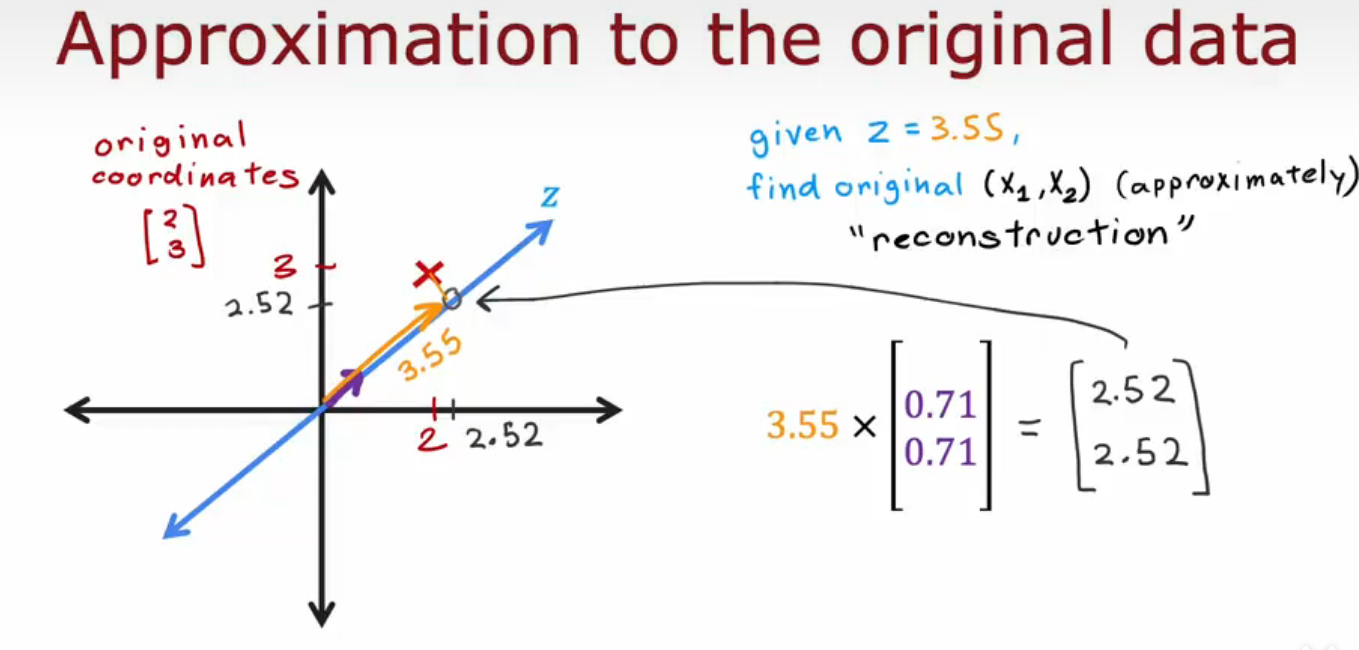 Approximation to the original data
original
coordinates
[2
3]
3
2.52
z
3.55
2 2.52
given z = 3.55,
find original (x₁, x₂) (approximately)
"reconstruction"
3.55 × [0.71
0.71] = [2.52
2.52]